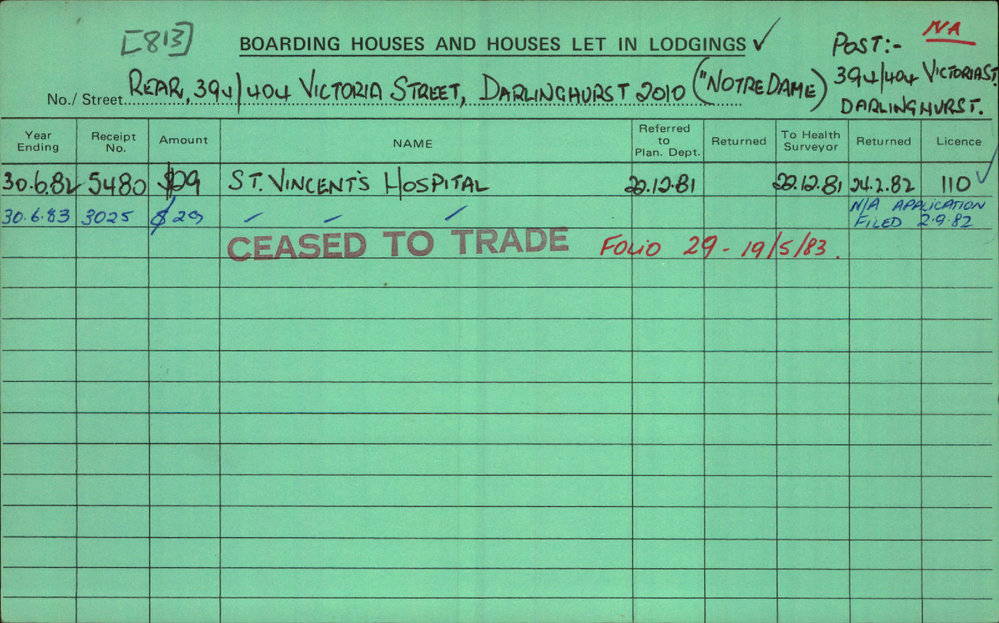 [813] BOARDING HOUSES AND HOUSES LET IN LODGINGS ✓ POST:- N/A
No./ Street REAR, 394/404 VICTORIA STREET, DARLINGHURST 2010 ("NOTRE DAME") 394/404 VICTORIA ST.
DARLINGHURST.
Year Ending Receipt No. Amount NAME Referred to Plan. Dept. Returned To Health Surveyor Returned Licence
30.6.82 5480 $29 ST. VINCENT'S HOSPITAL 22.12.81 22.12.81 24.2.82 110 ✓
30.6.83 3025 $29 〃 〃 〃 N/A APPLICATION
FILED 2.9.82
CEASED TO TRADE FOLIO 29 - 19/5/83.